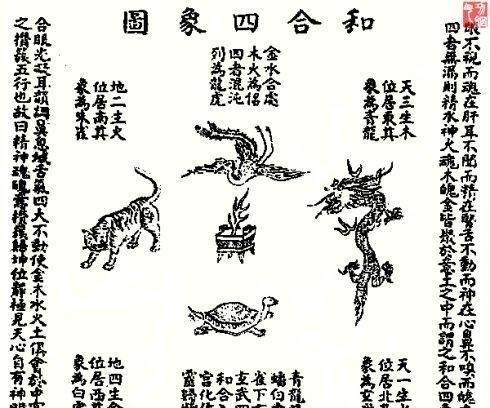 和合四象圖
眼不視而魂在肝耳不聞而精在腎舌不動而神在心鼻不嗅而
四者無漏則精水神火魂木魄金皆聚於意土之中而謂之和合四
天三生木
位居東其
象為青龍
金水合處
木火為侶
四者混沌
列為龍虎
地二生火
位居南其
象為朱雀
天一生
位居北
象為玄
青龍
蟠白
雀下
玄武四
和合
宮化
靈
地四生金
位居西其
象為白
合眼光凝耳韻調鼻息緘舌氣四大不動使金木水火土俱會於中
之攢簇五行也故曰精神魂魄意攢簇歸坤位靜極見天心自有神明